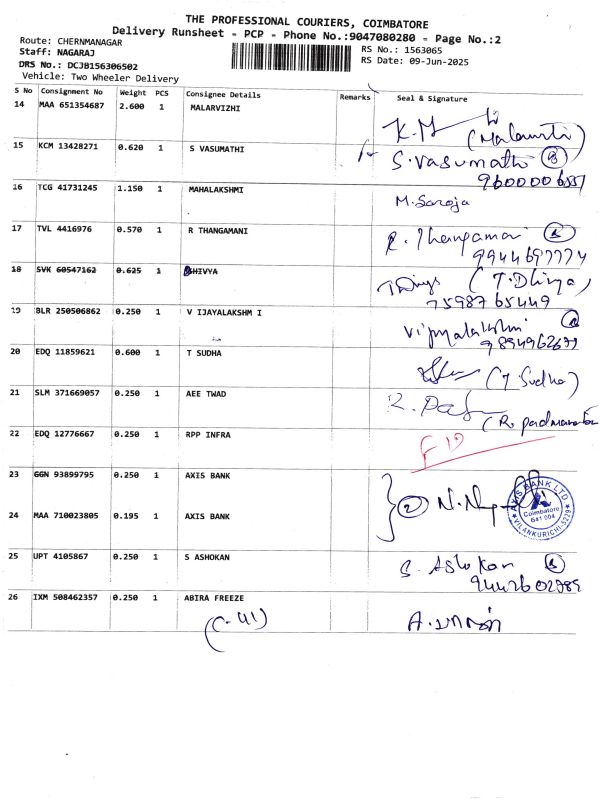 THE PROFESSIONAL COURIERS, COIMBATORE
Delivery Runsheet - PCP - Phone No.:9047080280 - Page No.:2
Route: CHERNMANAGAR
RS No.: 1563065
Staff: NAGARAJ
RS Date: 09-Jun-2025
DRS No.: DCJB156306502
Vehicle: Two Wheeler Delivery
S No Consignment No Weight PCS Consignee Details Remarks Seal & Signature
14 MAA 651354687 2.600 1 MALARVIZHI
K.M
15 KCM 13428271 0.620 1 S VASUMATHI S.Vasumathi
16 TCG 41731245 1.150 1 MAHALAKSHMI
M.Saroja
17 TVL 4416976 0.570 1 R THANGAMANI R. Thangamani
9944697774
18 SVK 60547162 0.625 1 DHIVYA (T.Dhivya)
7598765449
19 BLR 250506862 0.250 1 V IJAYALAKSHM I
Vijayalakshmi
20 EDQ 11859621 0.600 1 T SUDHA (T Sudha)
21 SLM 371669057 0.250 1 AEE TWAD
22 EDQ 12776667 0.250 1 RPP INFRA
23 GGN 93899795 0.250 1 AXIS BANK
24 MAA 710023805 0.195 1 AXIS BANK
2
AXIS BANK LTD
Coimbatore
641 004
VILANKURICHI-5229
25 UPT 4105867 0.250 1 S ASHOKAN S. Ashokan
26 IXM 508462357 0.250 1 ABIRA FREEZE
(C-41)